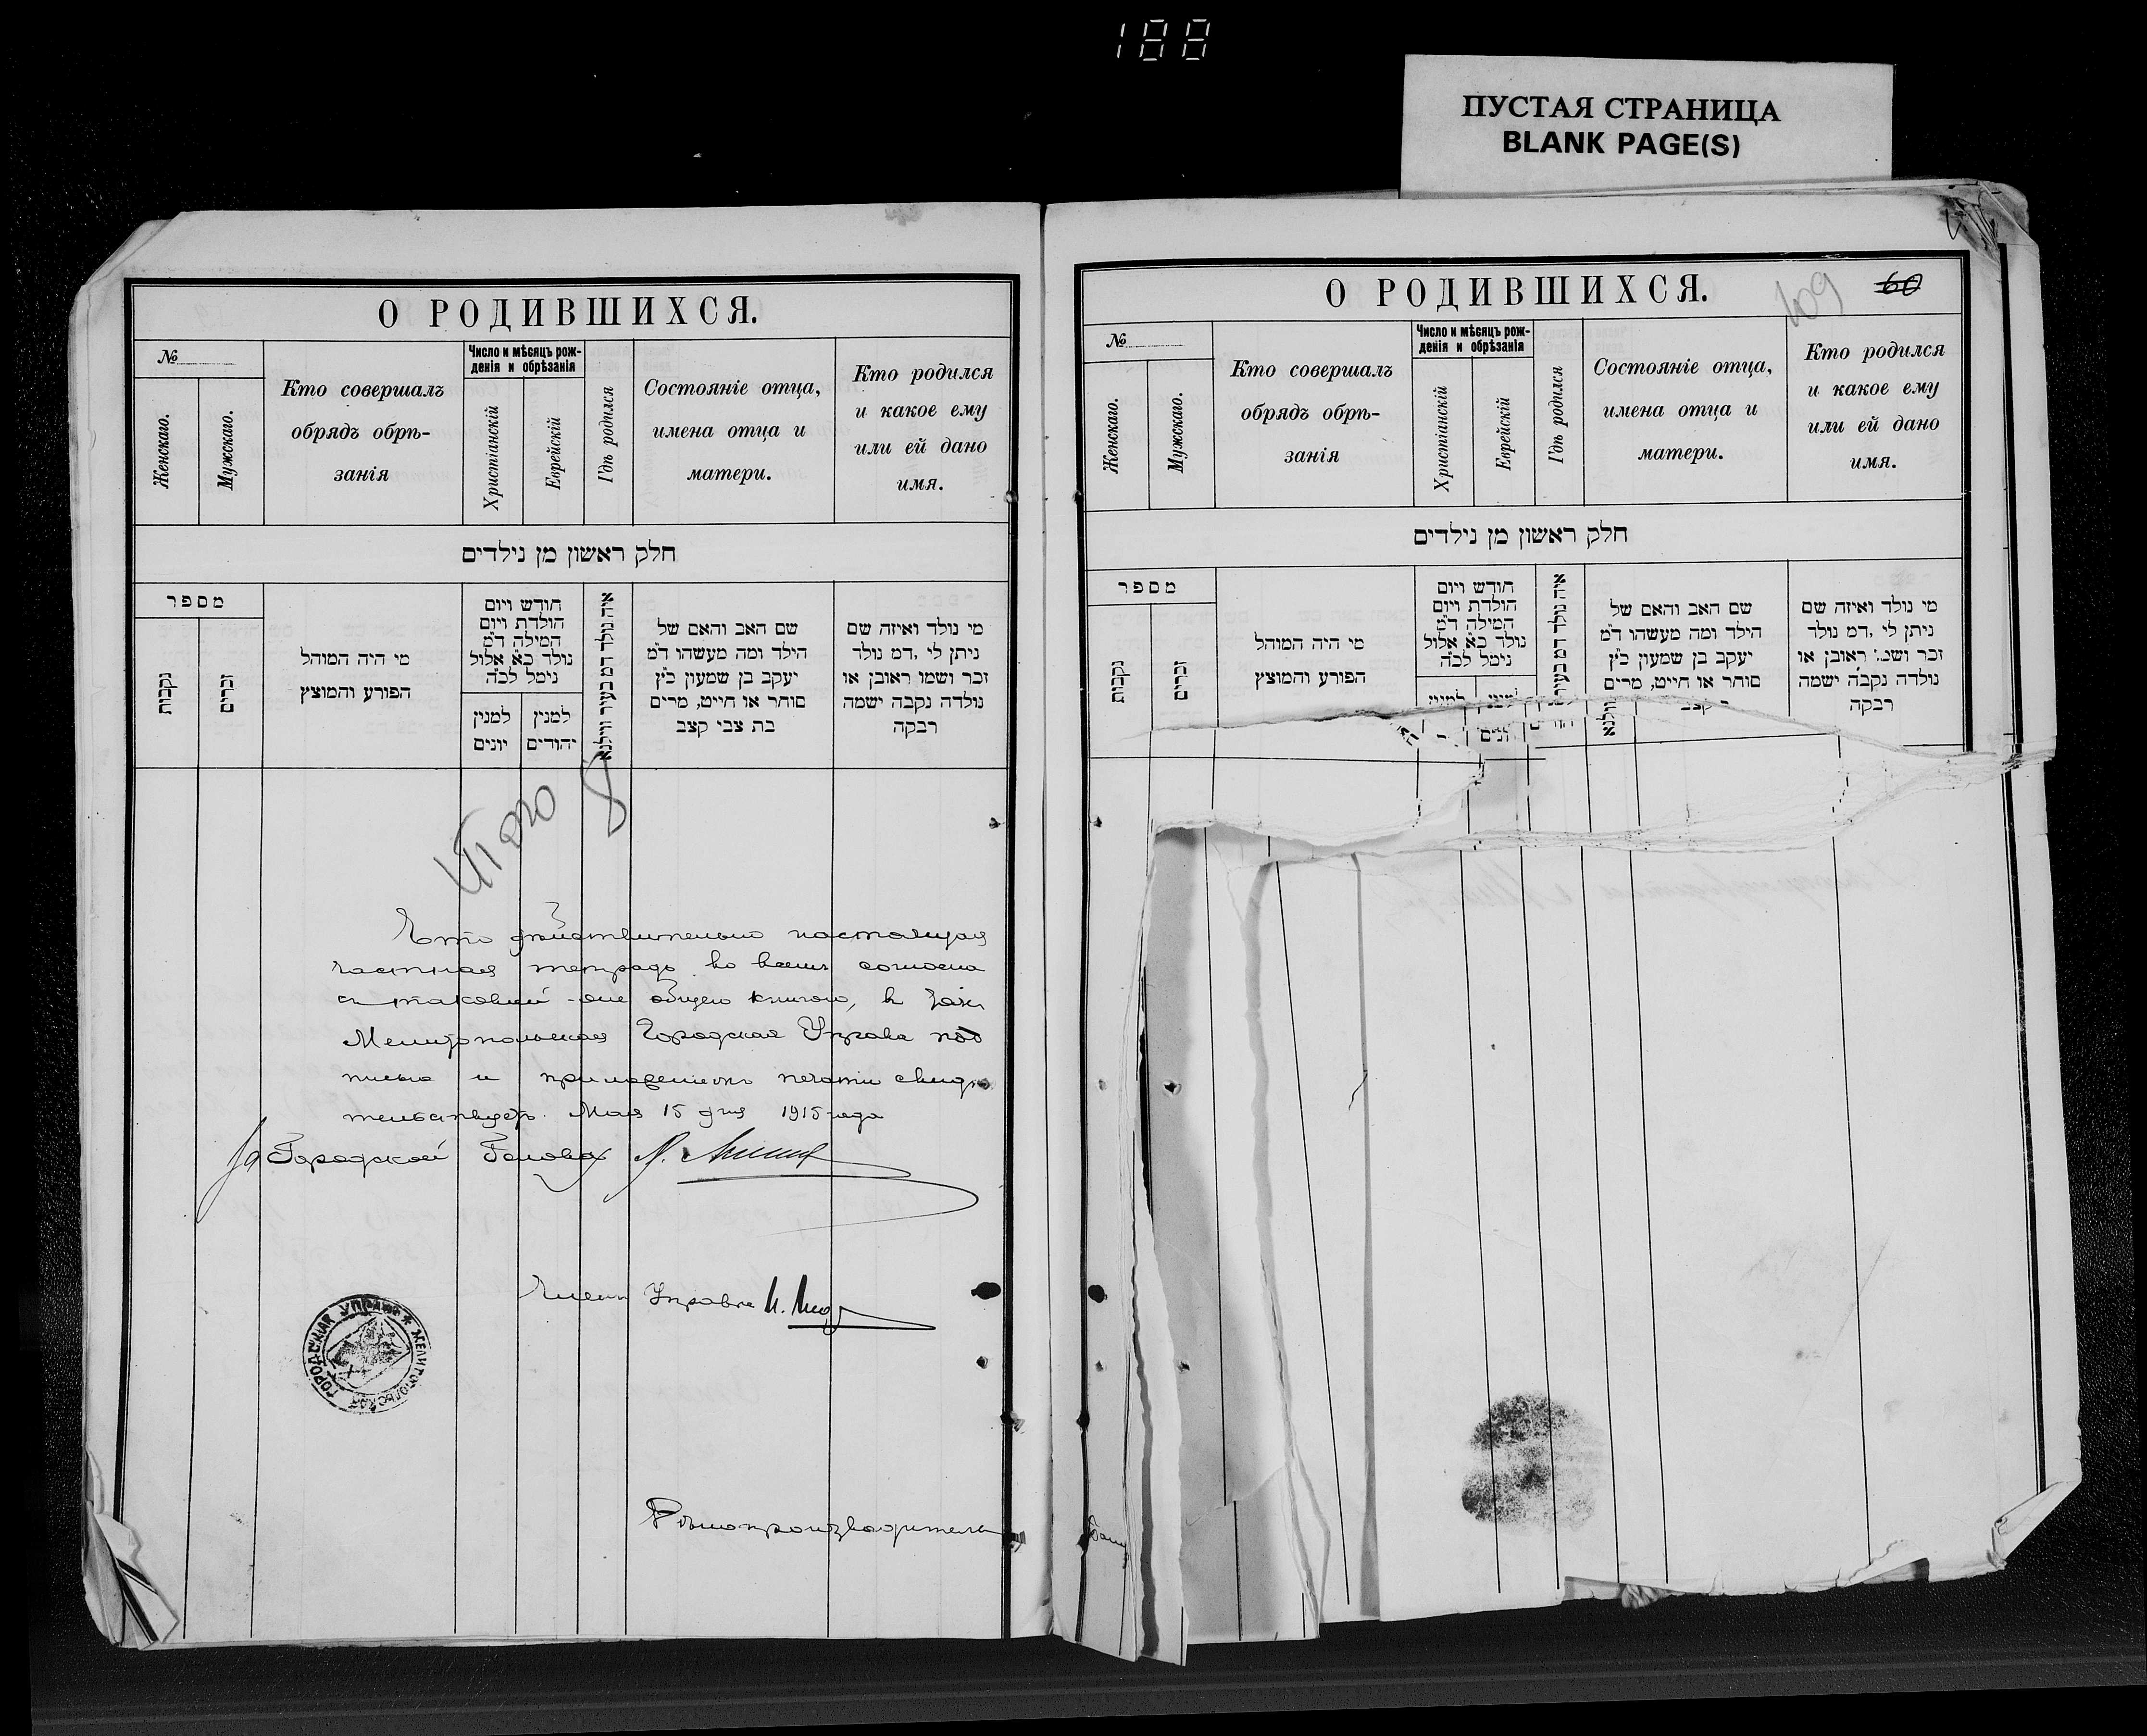 188
ПУСТАЯ СТРАНИЦА
BLANK PAGE(S)
О РОДИВШИХСЯ.
№
Женскаго.
Мужскаго.
Кто совершалъ
обрядъ обрѣ-
занія
Число и мѣсяцъ рож-
денія и обрѣзанія
Христіанскій
Еврейскій
Гдѣ родился
Состояніе отца,
имена отца и
матери.
Кто родился
и какое ему
или ей дано
имя.
חלק ראשון מן נילדים
מספר
נקבות
זכרים
מי היה המוהל
הפורע והמוצץ
חודש ויום
הולדת ויום
המילה ד״מ
נולד כ״א אלול
נימל לכ״ה
למנין
יונים
למנין
יהודים
איה נולד דמ בעיר ווילנא
שם האב והאם של
הילד ומה מעשהו ד״מ
יעקב בן שמעון כ״ץ
סוחר או חייט, מרים
בת צבי קצב
מי נולד ואיזה שם
ניתן לי, דמ נולד
זכר ושמו ראובן או
נולדה נקבה ישמה
רבקה
Итого 8
Что дѣйствительно настоящая
частная тетрадь во всемъ согласна
съ таковой-же общею книгою, в
Мелитопольская Городская Управа под
писью и приложеніемъ печати свидѣ
тельствуетъ. Мая 15 дня 1915 года
Городской Голова
Членъ Управы
МЕЛИТОПОЛЬСКАЯ ГОРОДСКАЯ УПРАВА
Дѣлопроизводитель
О РОДИВШИХСЯ.
109
60
№
Женскаго.
Мужскаго.
Кто совершалъ
обрядъ обрѣ-
занія
Число и мѣсяцъ рож-
денія и обрѣзанія
Христіанскій
Еврейскій
Гдѣ родился
Состояніе отца,
имена отца и
матери.
Кто родился
и какое ему
или ей дано
имя.
חלק ראשון מן נילדים
מספר
נקבות
זכרים
מי היה המוהל
הפורע והמוצץ
חודש ויום
הולדת ויום
המילה ד״מ
נולד כ״א אלול
נימל לכ״ה
למנין
יונים
איה נולד דמ בעיר
ווילנא
שם האב והאם של
הילד ומה מעשהו ד״מ
יעקב בן שמעון כ״ץ
סוחר או חייט, מרים
קצב
מי נולד ואיזה שם
ניתן לי, דמ נולד
זכר ושמו ראובן או
נולדה נקבה ישמה
רבקה